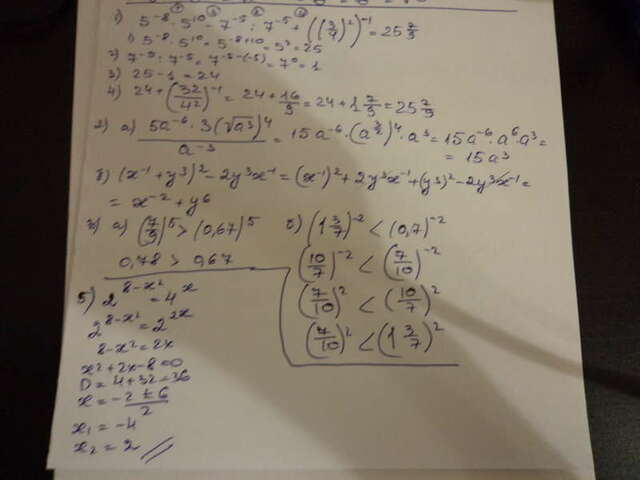 1) 5⁻⁸ · 5¹⁰ - 7⁻⁵ : 7⁻⁵ + ((3/4)²)⁻¹ = 25 7/9
1) 5⁻⁸ · 5¹⁰ = 5⁻⁸⁺¹⁰ = 5² = 25
2) 7⁻⁵ : 7⁻⁵ = 7⁻⁵⁻⁽⁻⁵⁾ = 7⁰ = 1
3) 25 - 1 = 24
4) 24 + (3²/4²)⁻¹ = 24 + 16/9 = 24 + 1 7/9 = 25 7/9
2) а) 5a⁻⁶ · 3(√a³)⁴ / a⁻³ = 15a⁻⁶ · (a^(3/2))⁴ · a³ = 15a⁻⁶ · a⁶ · a³ =
= 15a³
б) (x⁻¹ + y³)² - 2y³x⁻¹ = (x⁻¹)² + 2y³x⁻¹ + (y³)² - 2y³x⁻¹ =
= x⁻² + y⁶
а) (7/9)⁵ > (0,67)⁵
0,78 > 0,67
б) (1 3/7)⁻² < (0,7)⁻²
(10/7)⁻² < (7/10)⁻²
(7/10)² < (10/7)²
(7/10)² < (1 3/7)²
5) 2^(8-x²) = 4^x
2^(8-x²) = 2^(2x)
8 - x² = 2x
x² + 2x - 8 = 0
D = 4 + 32 = 36
x = -2 ± 6 / 2
x₁ = -4
x₂ = 2 //